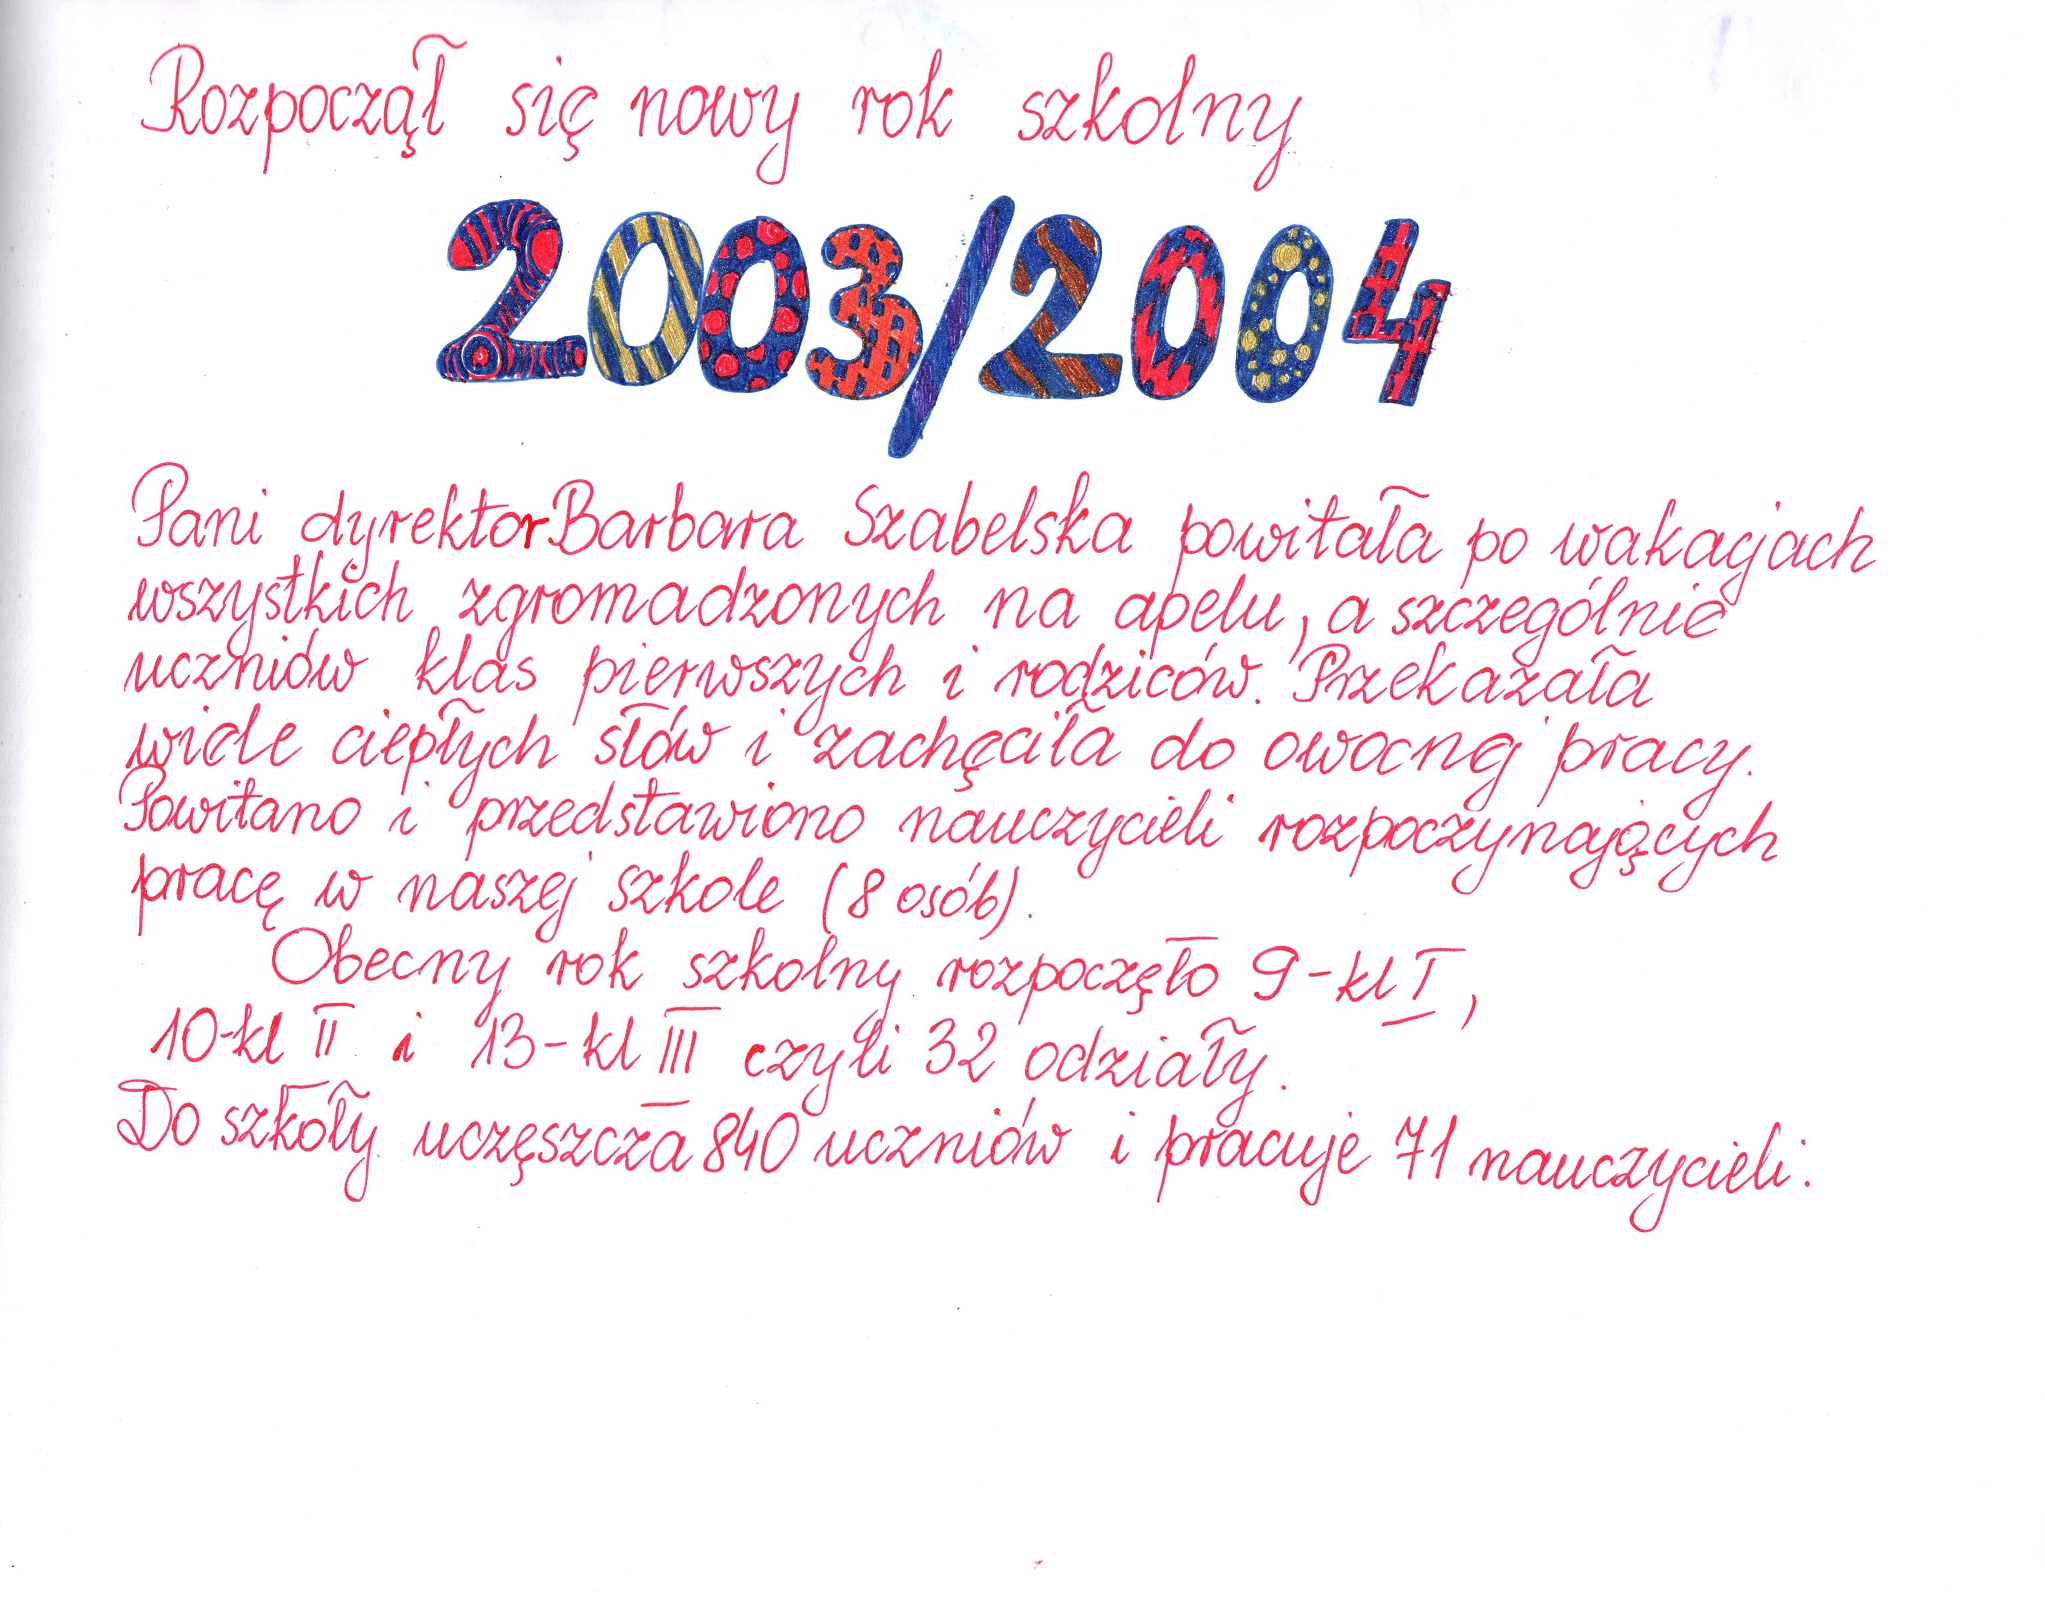 Rozpoczął się nowy rok szkolny
2003/2004
Pani dyrektor Barbara Szabelska powitała po wakacjach
wszystkich zgromadzonych na apelu, a szczególnie
uczniów klas pierwszych i rodziców. Przekazała
wiele ciepłych słów i zachęciła do owocnej pracy.
Powitano i przedstawiono nauczycieli rozpoczynających
pracę w naszej szkole (8 osób).
Obecny rok szkolny rozpoczęło 9-kl I,
10-kl II i 13-kl III czyli 32 odziały.
Do szkoły uczęszcza 840 uczniów i pracuje 71 nauczycieli.